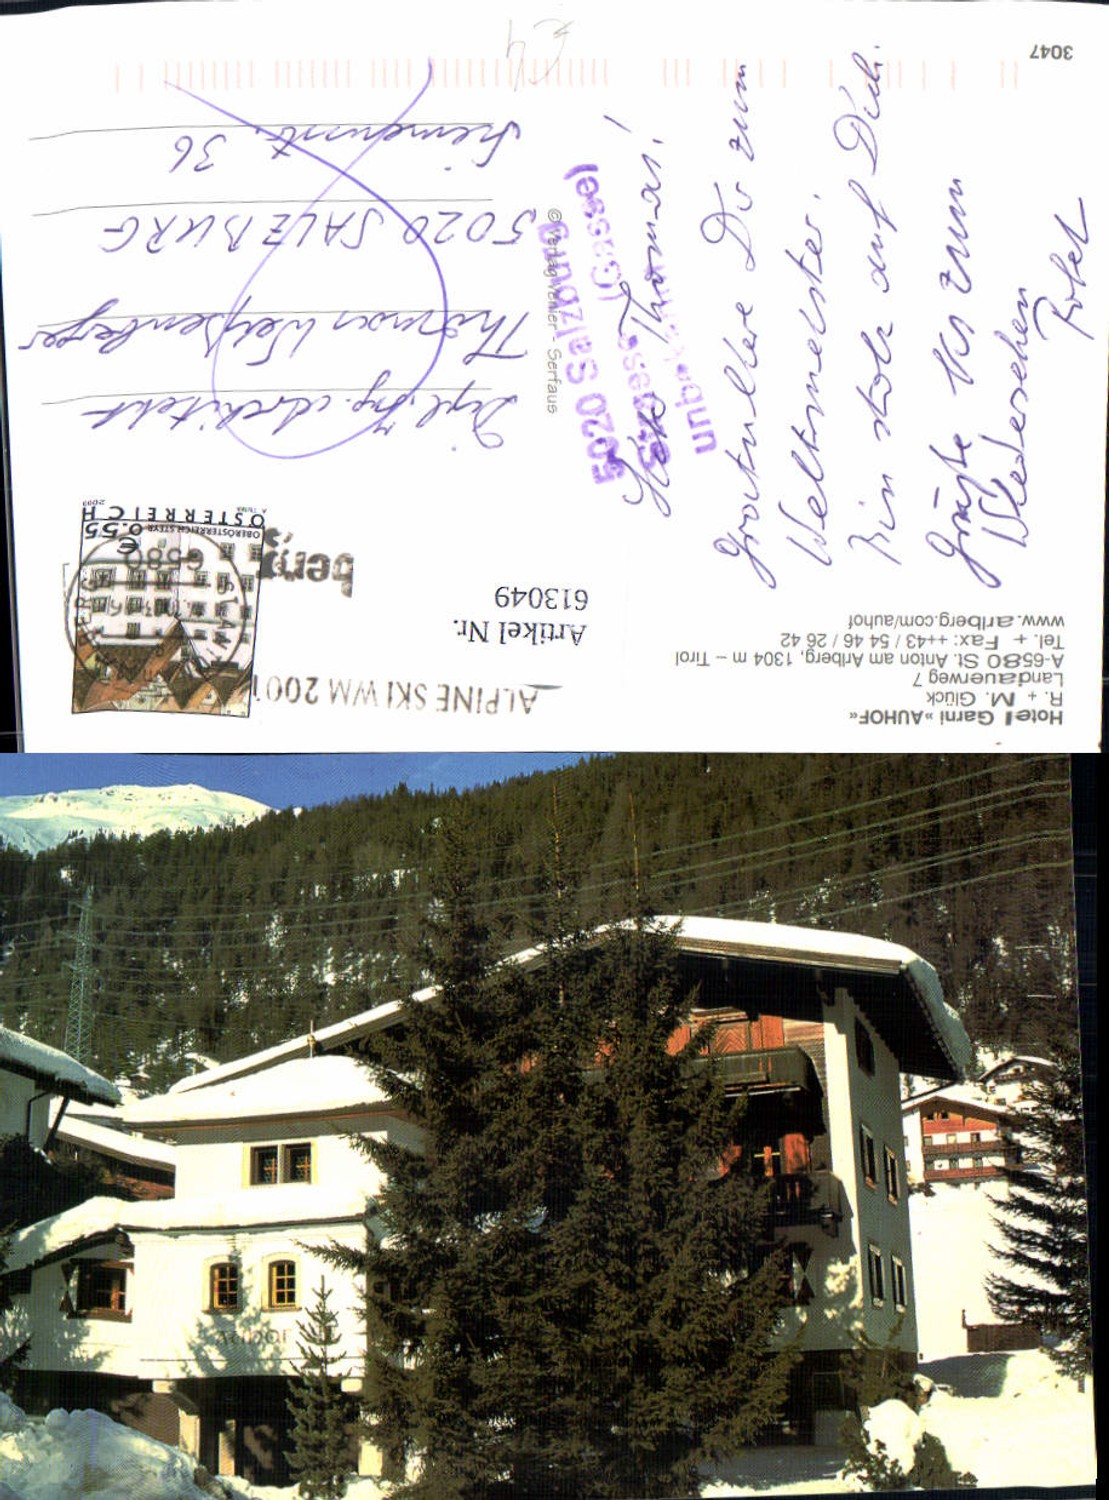 Hotel Garni »AUHOF«
R. + M. Glück
Landauerweg 7
A-6580 St. Anton am Arlberg, 1304 m – Tirol
Tel. + Fax: ++43 / 54 46 / 26 42
www.arlberg.com/auhof
ALPINE SKI WM 2001
Artikel Nr.
613049
berg
6580
ST. ANTON
€
0.55
OBERÖSTERREICH STEYR
ÖSTERREICH
2003
Thomas!
Gratuliere Dir zum
Weltmeister.
Bin stolz auf Dich.
Grüße bis zum
Wiedersehen
5020 Salzburg
(Gasse)
© Verlag Venier - Serfaus
Dipl. Ing. Architekt
Thomas
5020 SALZBURG
36
3047
€4
Auhof